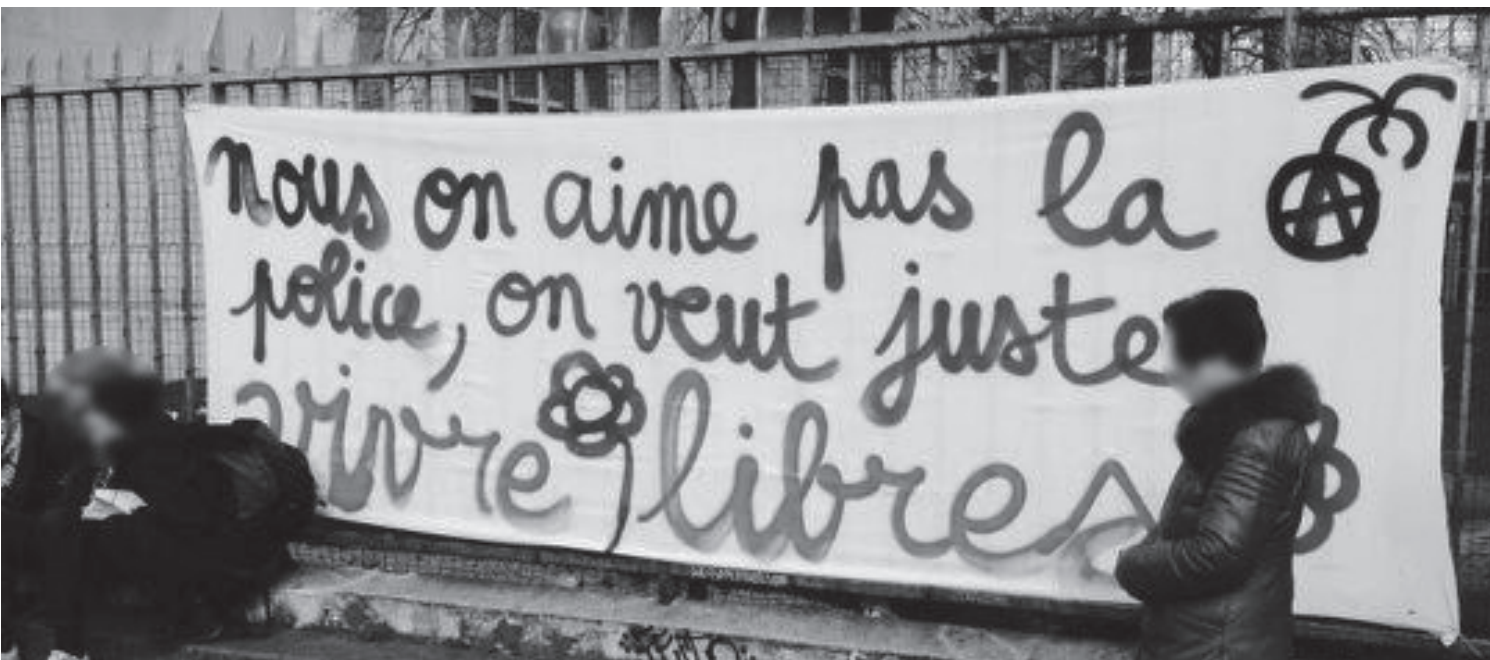 nous on aime pas la
police, on veut juste
vivre libres